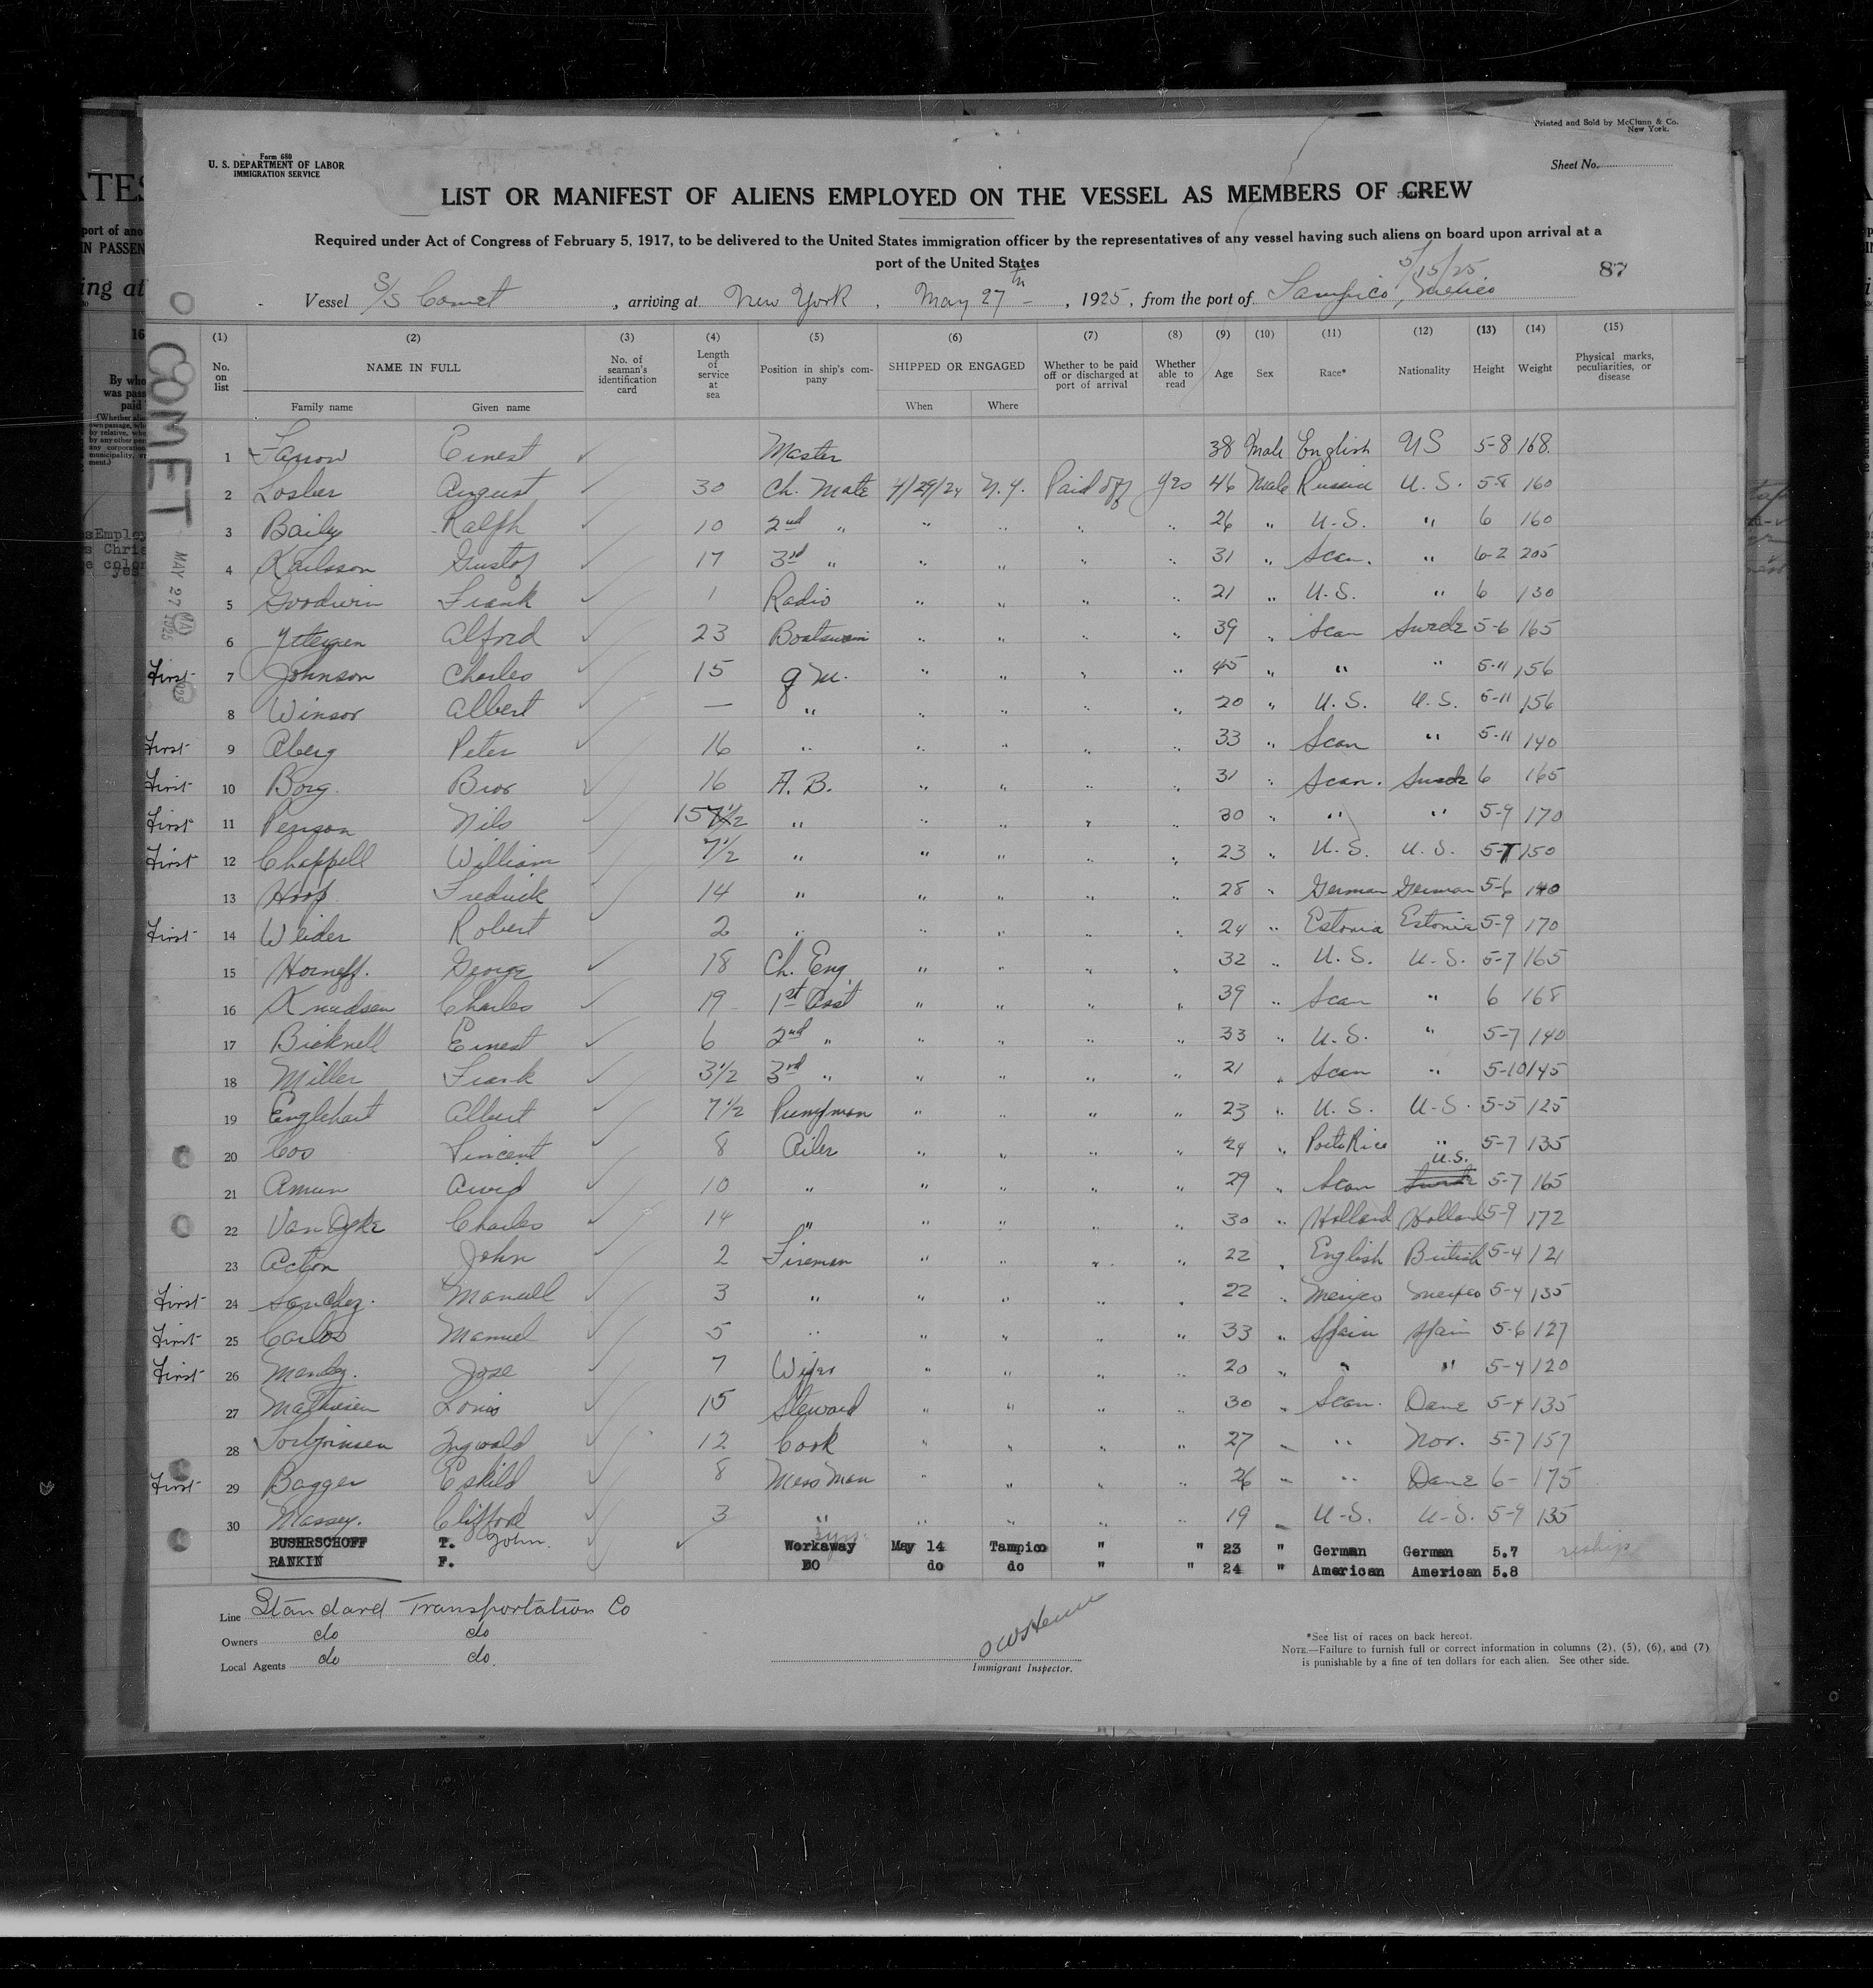 Printed and Sold by McClunn & Co.
New York.
Form 680
U. S. DEPARTMENT OF LABOR
IMMIGRATION SERVICE
Sheet No.
LIST OR MANIFEST OF ALIENS EMPLOYED ON THE VESSEL AS MEMBERS OF CREW
Required under Act of Congress of February 5, 1917, to be delivered to the United States immigration officer by the representatives of any vessel having such aliens on board upon arrival at a
port of the United States
5/15/25
87
Vessel S/S Comet, arriving at New York, May 27th, 1925, from the port of Tampico, Mexico
COMET
MAY 27 1925
(1) (2) (3) (4) (5) (6) (7) (8) (9) (10) (11) (12) (13) (14) (15)
No. on list NAME IN FULL No. of seaman's identification card Length of service at sea Position in ship's company SHIPPED OR ENGAGED Whether to be paid off or discharged at port of arrival Whether able to read Age Sex Race* Nationality Height Weight Physical marks, peculiarities, or disease
Family name Given name When Where
1 Farrow Ernest Master 38 Male English US 5-8 168
2 August 30 Ch. Mate 4/29/24 N.Y. Paid off Yes 46 Male Russia U.S. 5-8 160
3 Baily Ralph 10 2nd " " " " " 26 " U.S. " 6 160
4 Karlsson Gustof 17 3rd " " " " " 31 " Scan. " 6-2 205
5 Goodwin Frank 1 Radio " " " " 21 " U.S. " 6 130
6 Alford 23 Boatswain " " " " 39 " Scan Swede 5-6 165
First 7 Johnson Charles 15 Q M. " " " " 45 " " " 5-11 156
8 Winsor Albert — " " " " " 20 " U.S. U.S. 5-11 156
First 9 Aberg Peter 16 " " " " " 33 " Scan " 5-11 140
First 10 Borg Bror 16 A. B. " " " " 31 " Scan. Swede 6 165
First 11 Person Nils 15 " " " " " 30 " " " 5-9 170
First 12 Chappell William 7½ " " " " " 23 " U.S. U.S. 5-7 150
13 Hoop Fredrick 14 " " " " " 28 " German German 5-6 140
First 14 Weider Robert 2 " " " " " 24 " Estonia Estonia 5-9 170
15 Horneff. George 18 Ch. Eng " " " " 32 " U.S. U.S. 5-7 165
16 Knudsen Charles 19 1st Asst " " " " 39 " Scan " 6 168
17 Bicknell Ernest 6 2nd " " " " " 33 " U.S. " 5-7 140
18 Miller Frank 3½ 3rd " " " " " 21 " Scan " 5-10 145
19 Englehart Albert 7½ Pumpman " " " " 23 " U.S. U.S. 5-5 125
20 Cos Vincent 8 Oiler " " " " 24 " Porto Rico " 5-7 135
21 Amun Arvid 10 " " " " " 29 " Scan U.S. Swede 5-7 165
22 Van Dyke Charles 14 " " " " " 30 " Holland Holland 5-9 172
23 Acton John 2 Fireman " " " " 22 " English British 5-4 121
First 24 Sanchez. Manuell 3 " " " " " 22 " Mexico Mexico 5-4 135
First 25 Carlos Manuel 5 " " " " " 33 " Spain Spain 5-6 127
First 26 Mendez. Jose 7 Wiper " " " " 20 " " " 5-4 120
27 Mathisen Louis 15 Steward " " " " 30 " Scan. Dane 5-4 135
28 Torbjornsen Ingwald 12 Cook " " " " 27 " " Nor. 5-7 157
First 29 Bagger Eskild 8 Mess Man " " " " 26 " " Dane 6- 175
30 Massey. Clifford 3 " " " " " 19 " U-S. U-S. 5-9 135
BUSHRSCHOFF T. John. Workaway May 14 Tampico " " 23 " German German 5.7
RANKIN F. DO do do " " 24 " American American 5.8
Line Standard Transportation Co
Owners do do
Local Agents do do.
Immigrant Inspector.
*See list of races on back hereof.
NOTE.—Failure to furnish full or correct information in columns (2), (5), (6), and (7)
is punishable by a fine of ten dollars for each alien. See other side.